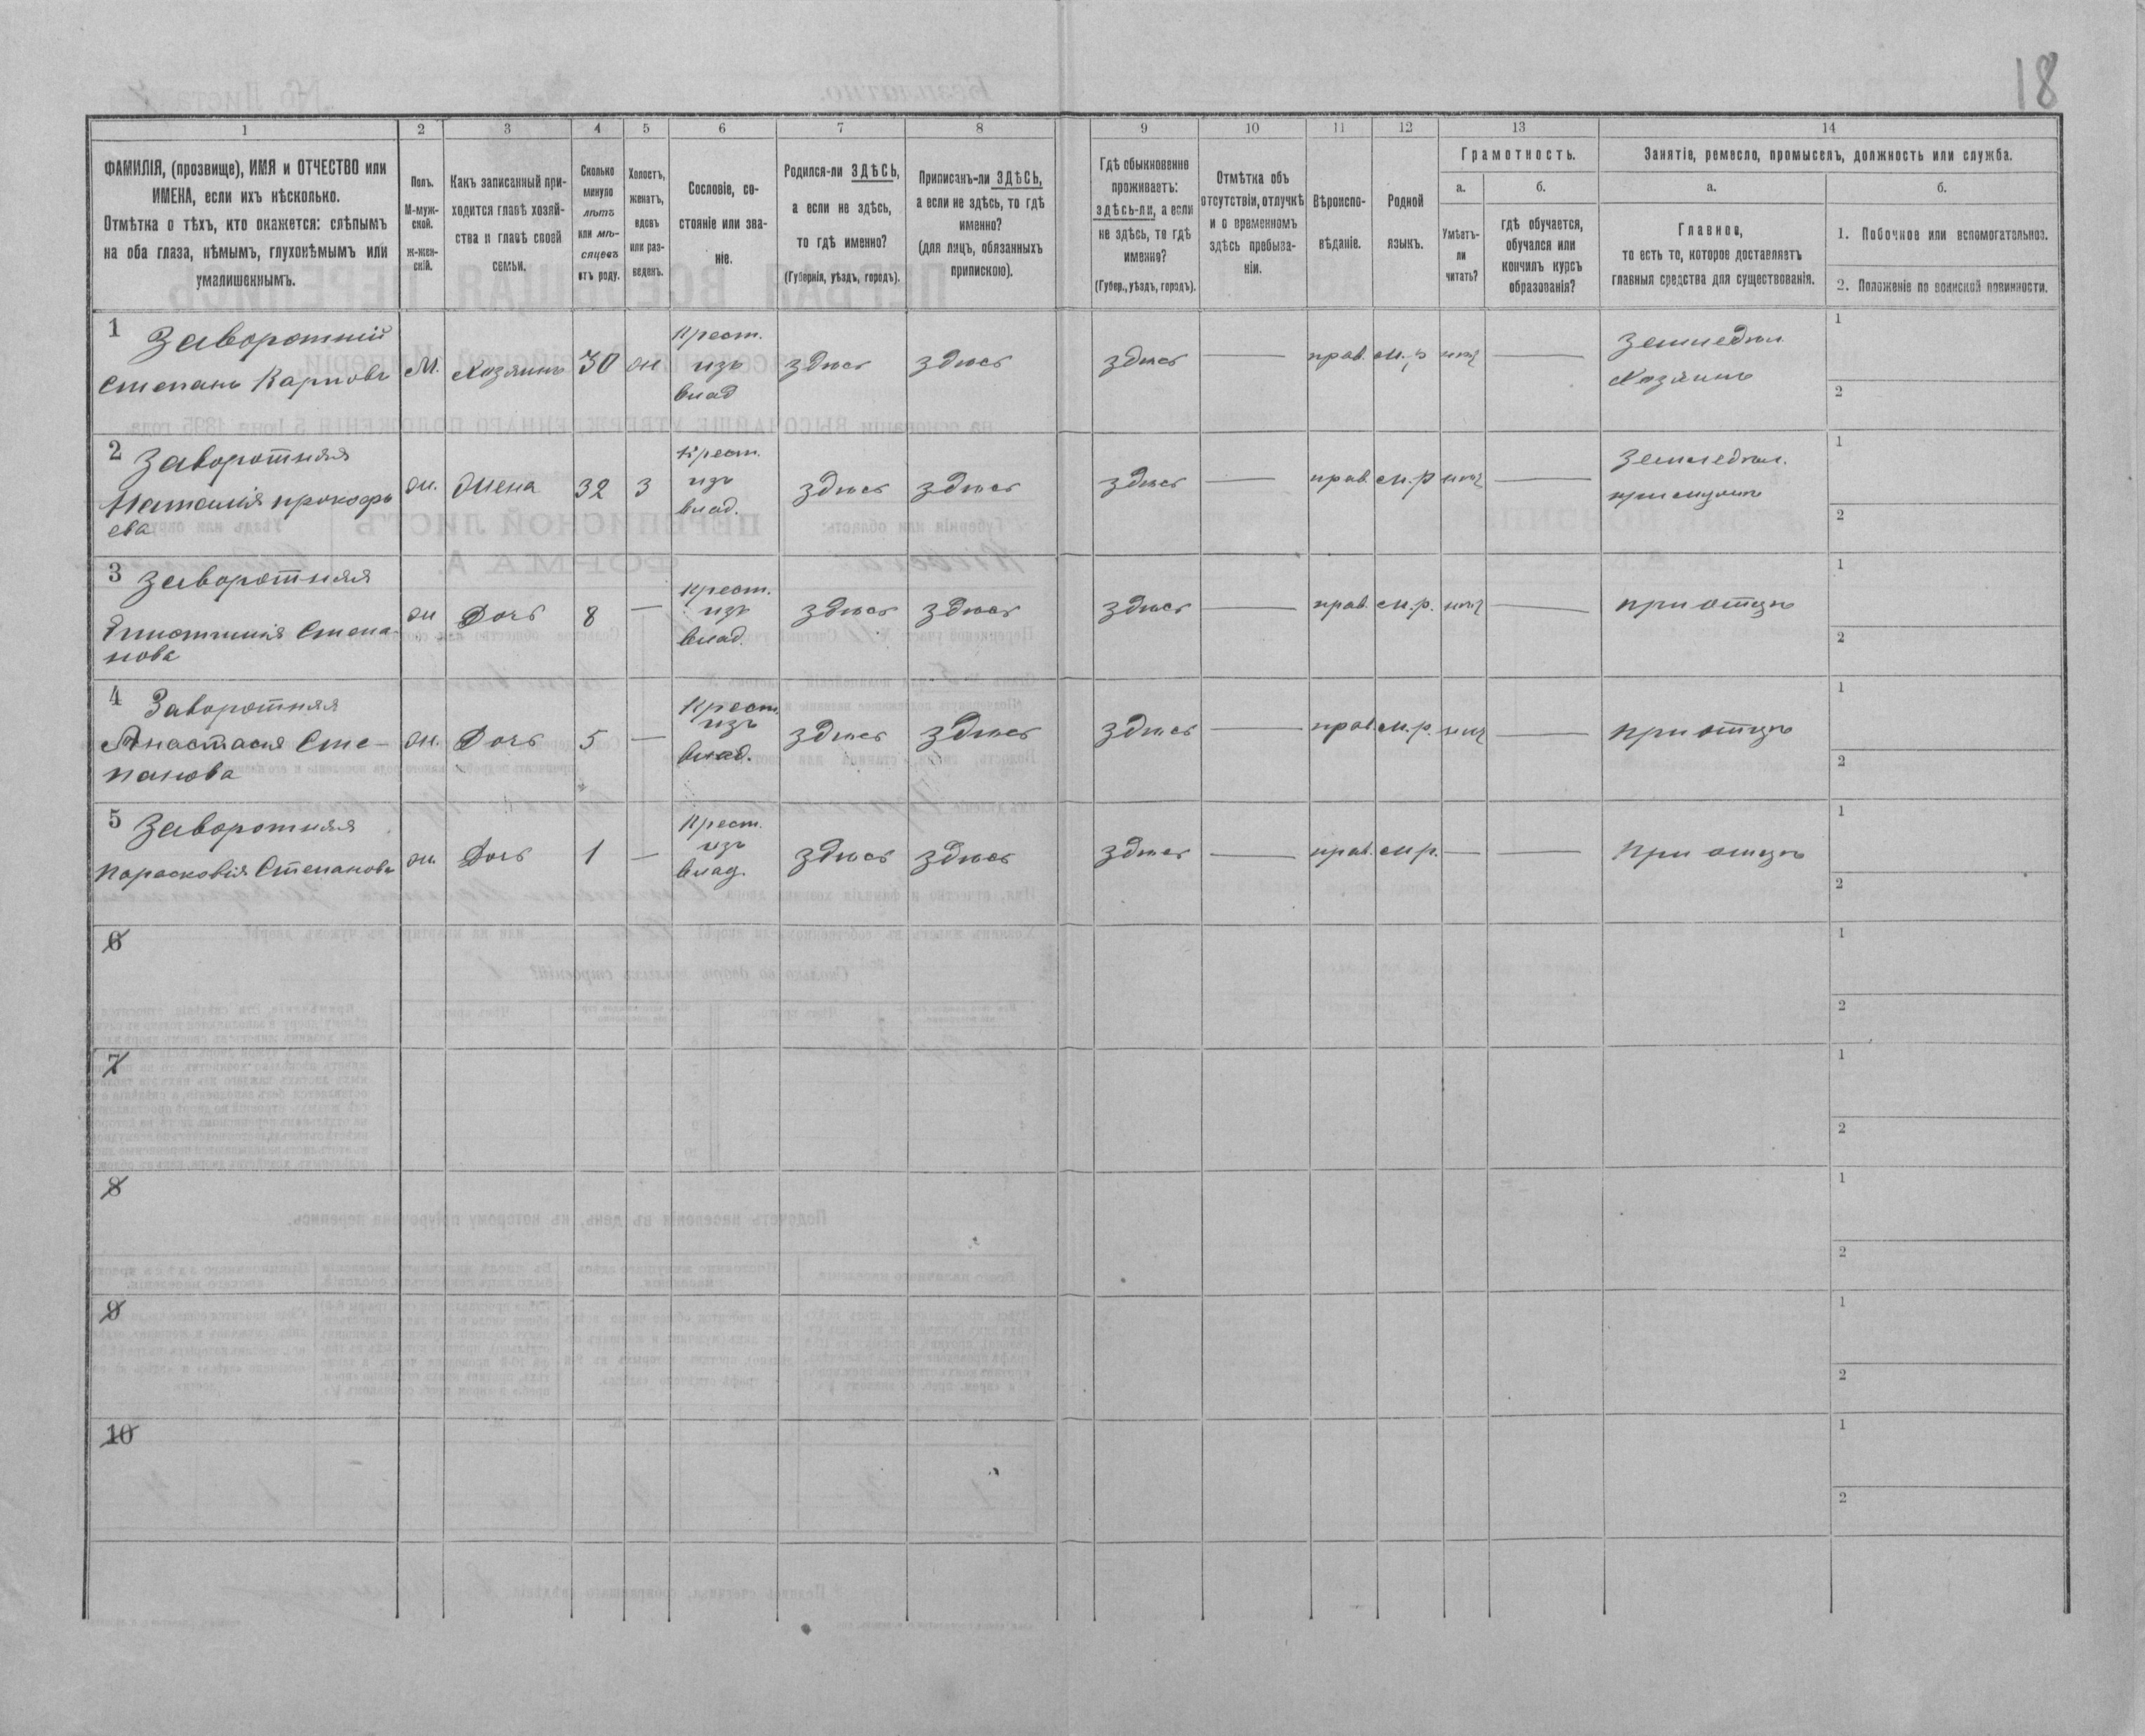 18
1 2 3 4 5 6 7 8 9 10 11 12 13 14
ФАМИЛІЯ, (прозвище), ИМЯ и ОТЧЕСТВО или
ИМЕНА, если ихъ нѣсколько.
Отмѣтка о тѣхъ, кто окажется: слѣпымъ
на оба глаза, нѣмымъ, глухонѣмымъ или
умалишеннымъ.
Полъ.
М-муж-
ской.
ж-жен-
скій.
Какъ записанный при-
ходится главѣ хозяй-
ства и главѣ своей
семьи.
Сколько
минуло
лѣтъ
или мѣ-
сяцевъ
отъ роду.
Холостъ,
женатъ,
вдовъ
или раз-
веденъ.
Сословіе, со-
стояніе или зва-
ніе.
Родился-ли ЗДѢСЬ,
а если не здѣсь,
то гдѣ именно?
(Губернія, уѣздъ, городъ).
Приписанъ-ли ЗДѢСЬ,
а если не здѣсь, то гдѣ
именно?
(для лицъ, обязанныхъ
припискою).
Гдѣ обыкновенно
проживаетъ:
здѣсь-ли, а если
не здѣсь, то гдѣ
именно?
(Губер., уѣздъ, городъ).
Отмѣтка объ
отсутствіи, отлучкѣ
и о временномъ
здѣсь пребыва-
ніи.
Вѣроиспо-
вѣданіе.
Родной
языкъ.
Грамотность.
а.
Умѣетъ-
ли
читать?
б.
гдѣ обучается,
обучался или
кончилъ курсъ
образованія?
Занятіе, ремесло, промыселъ, должность или служба.
а.
Главное,
то есть то, которое доставляетъ
главныя средства для существованія.
б.
1. Побочное или вспомогательное.
2. Положеніе по воинской повинности.
1 Заворотній
Степанъ Карповъ
М. Хозяинъ 30 ж
Крест.
изъ
влад
здѣсь здѣсь здѣсь — прав. м.р нѣт —
Земледѣл.
Хозяинъ
1
2
2 Заворотняя
Наталія Прокофь
ева
ж. Жена 32 з
Крест.
изъ
влад.
здѣсь здѣсь здѣсь — прав. м.р нѣт —
Земледѣл.
при мужѣ
1
2
3 Заворотняя
Степа-
нова
ж Дочь 8 —
Крест.
изъ
влад.
здѣсь здѣсь здѣсь — прав. м.р. нѣт —
при отцѣ
1
2
4 Заворотняя
Анастасія Сте-
панова
ж. Дочь 5 —
Крест.
изъ
влад.
здѣсь здѣсь здѣсь — прав. м.р. нѣт —
при отцѣ
1
2
5 Заворотняя
Парасковія Степанова
ж. Дочь 1 —
Крест.
изъ
влад.
здѣсь здѣсь здѣсь — прав. м.р. — —
При отцѣ
1
2
6
1
2
7
1
2
8
1
2
9
1
2
10
1
2